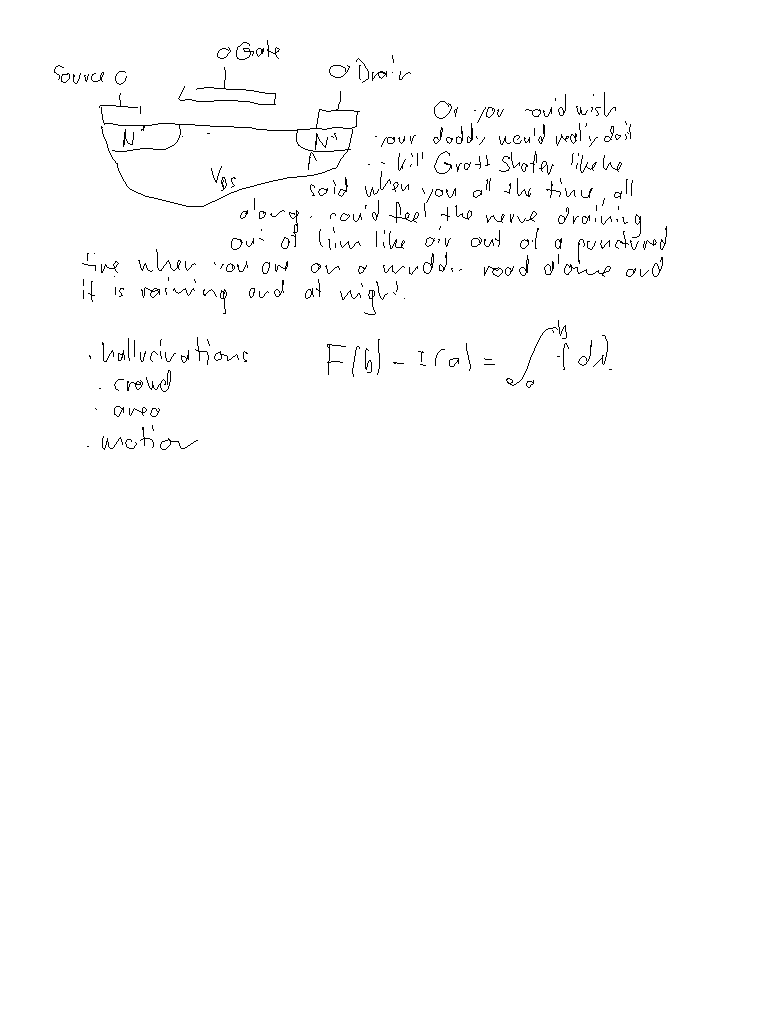 Source
Gate
Drain
N+
N+
VDS
Or you could wish
your daddy would really do it
kill Grats Shafer like he
said when you all the time, all
along, could feel the nerve draining
out of him like air out of a punctured
tire when you are on a muddy road alone and
it is raining and at night.
· hallucinations
· crowd
· area
· motion
F(b) - F(a) = ∫_a^b f dλ.